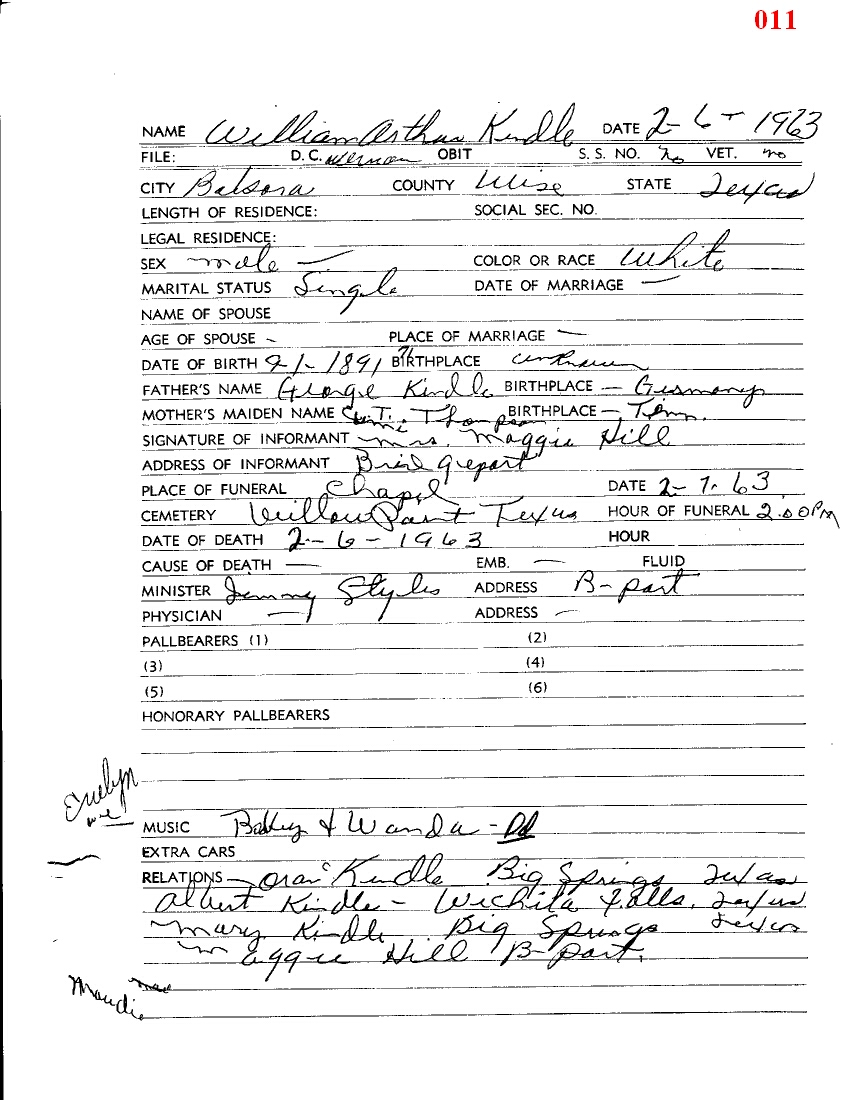 011
NAME William Arthur Kindle DATE 2-6-1963
FILE: D.C. Vernon OBIT S. S. NO. no VET. no
CITY Balsora COUNTY Wise STATE Texas
LENGTH OF RESIDENCE: SOCIAL SEC. NO.
LEGAL RESIDENCE:
SEX male — COLOR OR RACE White
MARITAL STATUS Single DATE OF MARRIAGE —
NAME OF SPOUSE
AGE OF SPOUSE - PLACE OF MARRIAGE —
DATE OF BIRTH 9-1-1891 BIRTHPLACE unknown
FATHER'S NAME George Kindle BIRTHPLACE — Germany
MOTHER'S MAIDEN NAME Thompson BIRTHPLACE — Tenn.
SIGNATURE OF INFORMANT — Mrs. Maggie Hill
ADDRESS OF INFORMANT Bridgeport
PLACE OF FUNERAL Chapel DATE 2-7-63
CEMETERY Willow Point Texas HOUR OF FUNERAL 2:00 PM
DATE OF DEATH 2-6-1963 HOUR
CAUSE OF DEATH — EMB. — FLUID
MINISTER Jimmy Styles ADDRESS B-port
PHYSICIAN — ADDRESS —
PALLBEARERS (1) (2)
(3) (4)
(5) (6)
HONORARY PALLBEARERS
Evelyn
MUSIC & Wanda - Pd
EXTRA CARS
RELATIONS — Kindle Big Springs Texas
Albert Kindle - Wichita Falls, Texas
Mary Kindle Big Springs Texas
Maggie Hill B-port.
Maudie